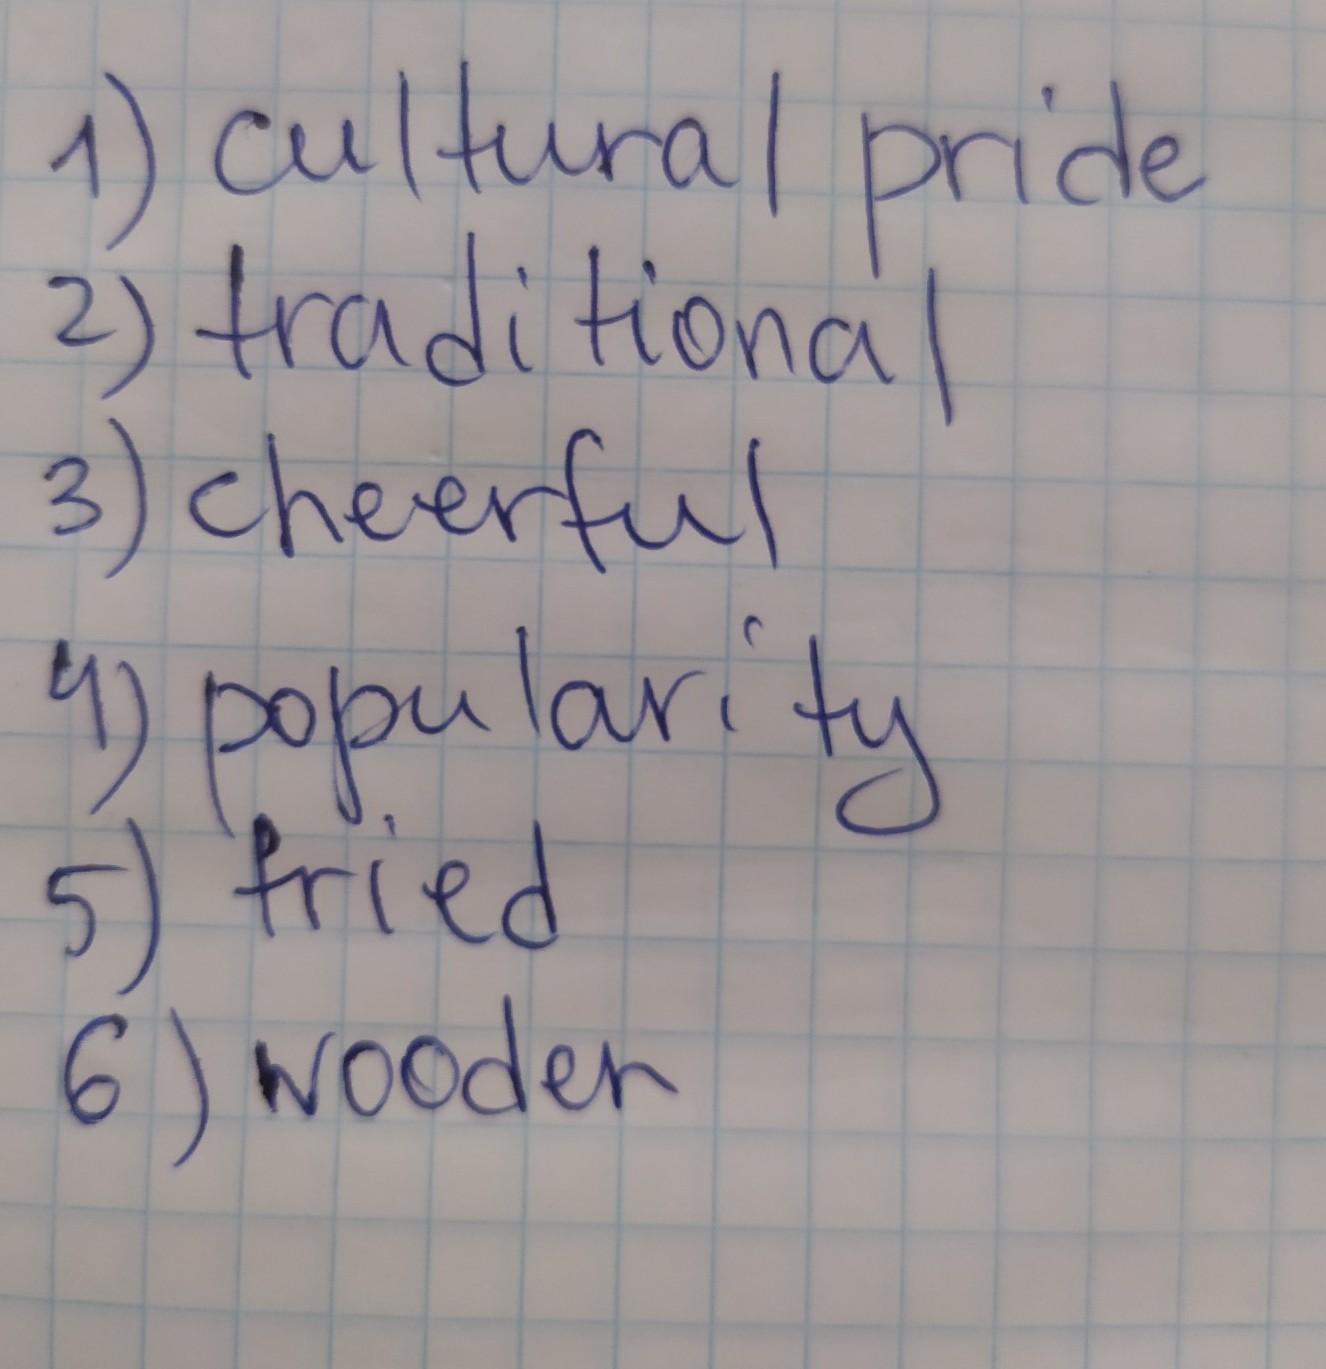 1) cultural pride
2) traditional
3) cheerful
4) popularity
5) fried
6) wooden